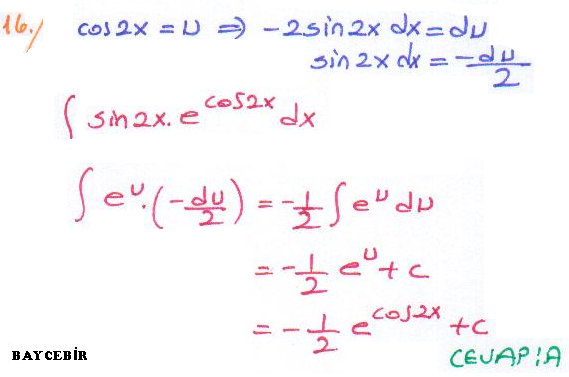 16./ cos2x = u ⇒ -2sin2x dx = du
sin2x dx = -du/2
∫ sin2x. e^cos2x dx
∫ e^u.(-du/2) = -1/2 ∫ e^u du
= -1/2 e^u + c
= -1/2 e^cos2x + c
CEVAP:A
BAYCEBİR